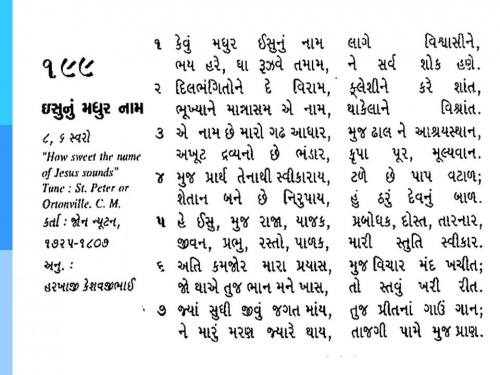 ૧૯૯
ઇસુનું મધુર નામ
૮, ૬ સ્વરો
"How sweet the name
of Jesus sounds"
Tune : St. Peter or
Ortonville. C. M.
કર્તા : જોન ન્યૂટન,
૧૭૨૫-૧૮૦૭
અનુ. :
હરખાજી કેશવજીભાઈ
૧ કેવું મધુર ઈસુનું નામ લાગે વિશ્વાસીને,
ભય હરે, ઘા રૂઝવે તમામ, ને સર્વ શોક હણે.
૨ દિલભંગિતોને દે વિરામ, ક્લેશીને કરે શાંત,
ભૂખ્યાને માન્નાસમ એ નામ, થાકેલાને વિશ્રાંત.
૩ એ નામ છે મારો ગઢ આધાર, મુજ ઢાલ ને આશ્રયસ્થાન,
અખૂટ દ્રવ્યનો છે ભંડાર, કૃપા પૂર, મૂલ્યવાન.
૪ મુજ પ્રાર્થ તેનાથી સ્વીકારાય, ટળે છે પાપ વટાળ;
શેતાન બને છે નિરુપાય, હું ઠરું દેવનું બાળ.
૫ હે ઈસુ, મુજ રાજા, યાજક, પ્રબોધક, દોસ્ત, તારનાર,
જીવન, પ્રભુ, રસ્તો, પાળક, મારી સ્તુતિ સ્વીકાર.
૬ અતિ કમજોર મારા પ્રયાસ, મુજ વિચાર મંદ ખચીત;
જો થાએ તુજ ભાન મને ખાસ, તો સ્તવું ખરી રીત.
૭ જ્યાં સુધી જીવું જગત માંય, તુજ પ્રીતનાં ગાઉં ગાન;
ને મારું મરણ જ્યારે થાય, તાજગી પામે મુજ પ્રાણ.